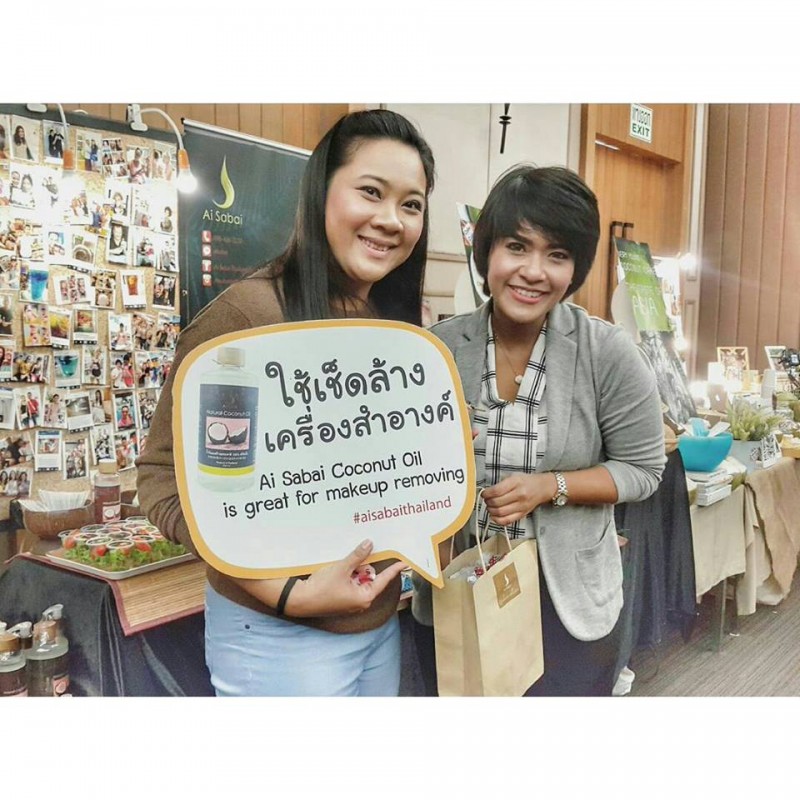 Ai Sabai
EXIT
ใช้เช็ดล้าง
เครื่องสำอางค์
Natural Coconut Oil
Ai Sabai Coconut Oil
is great for makeup removing
#aisabaithailand